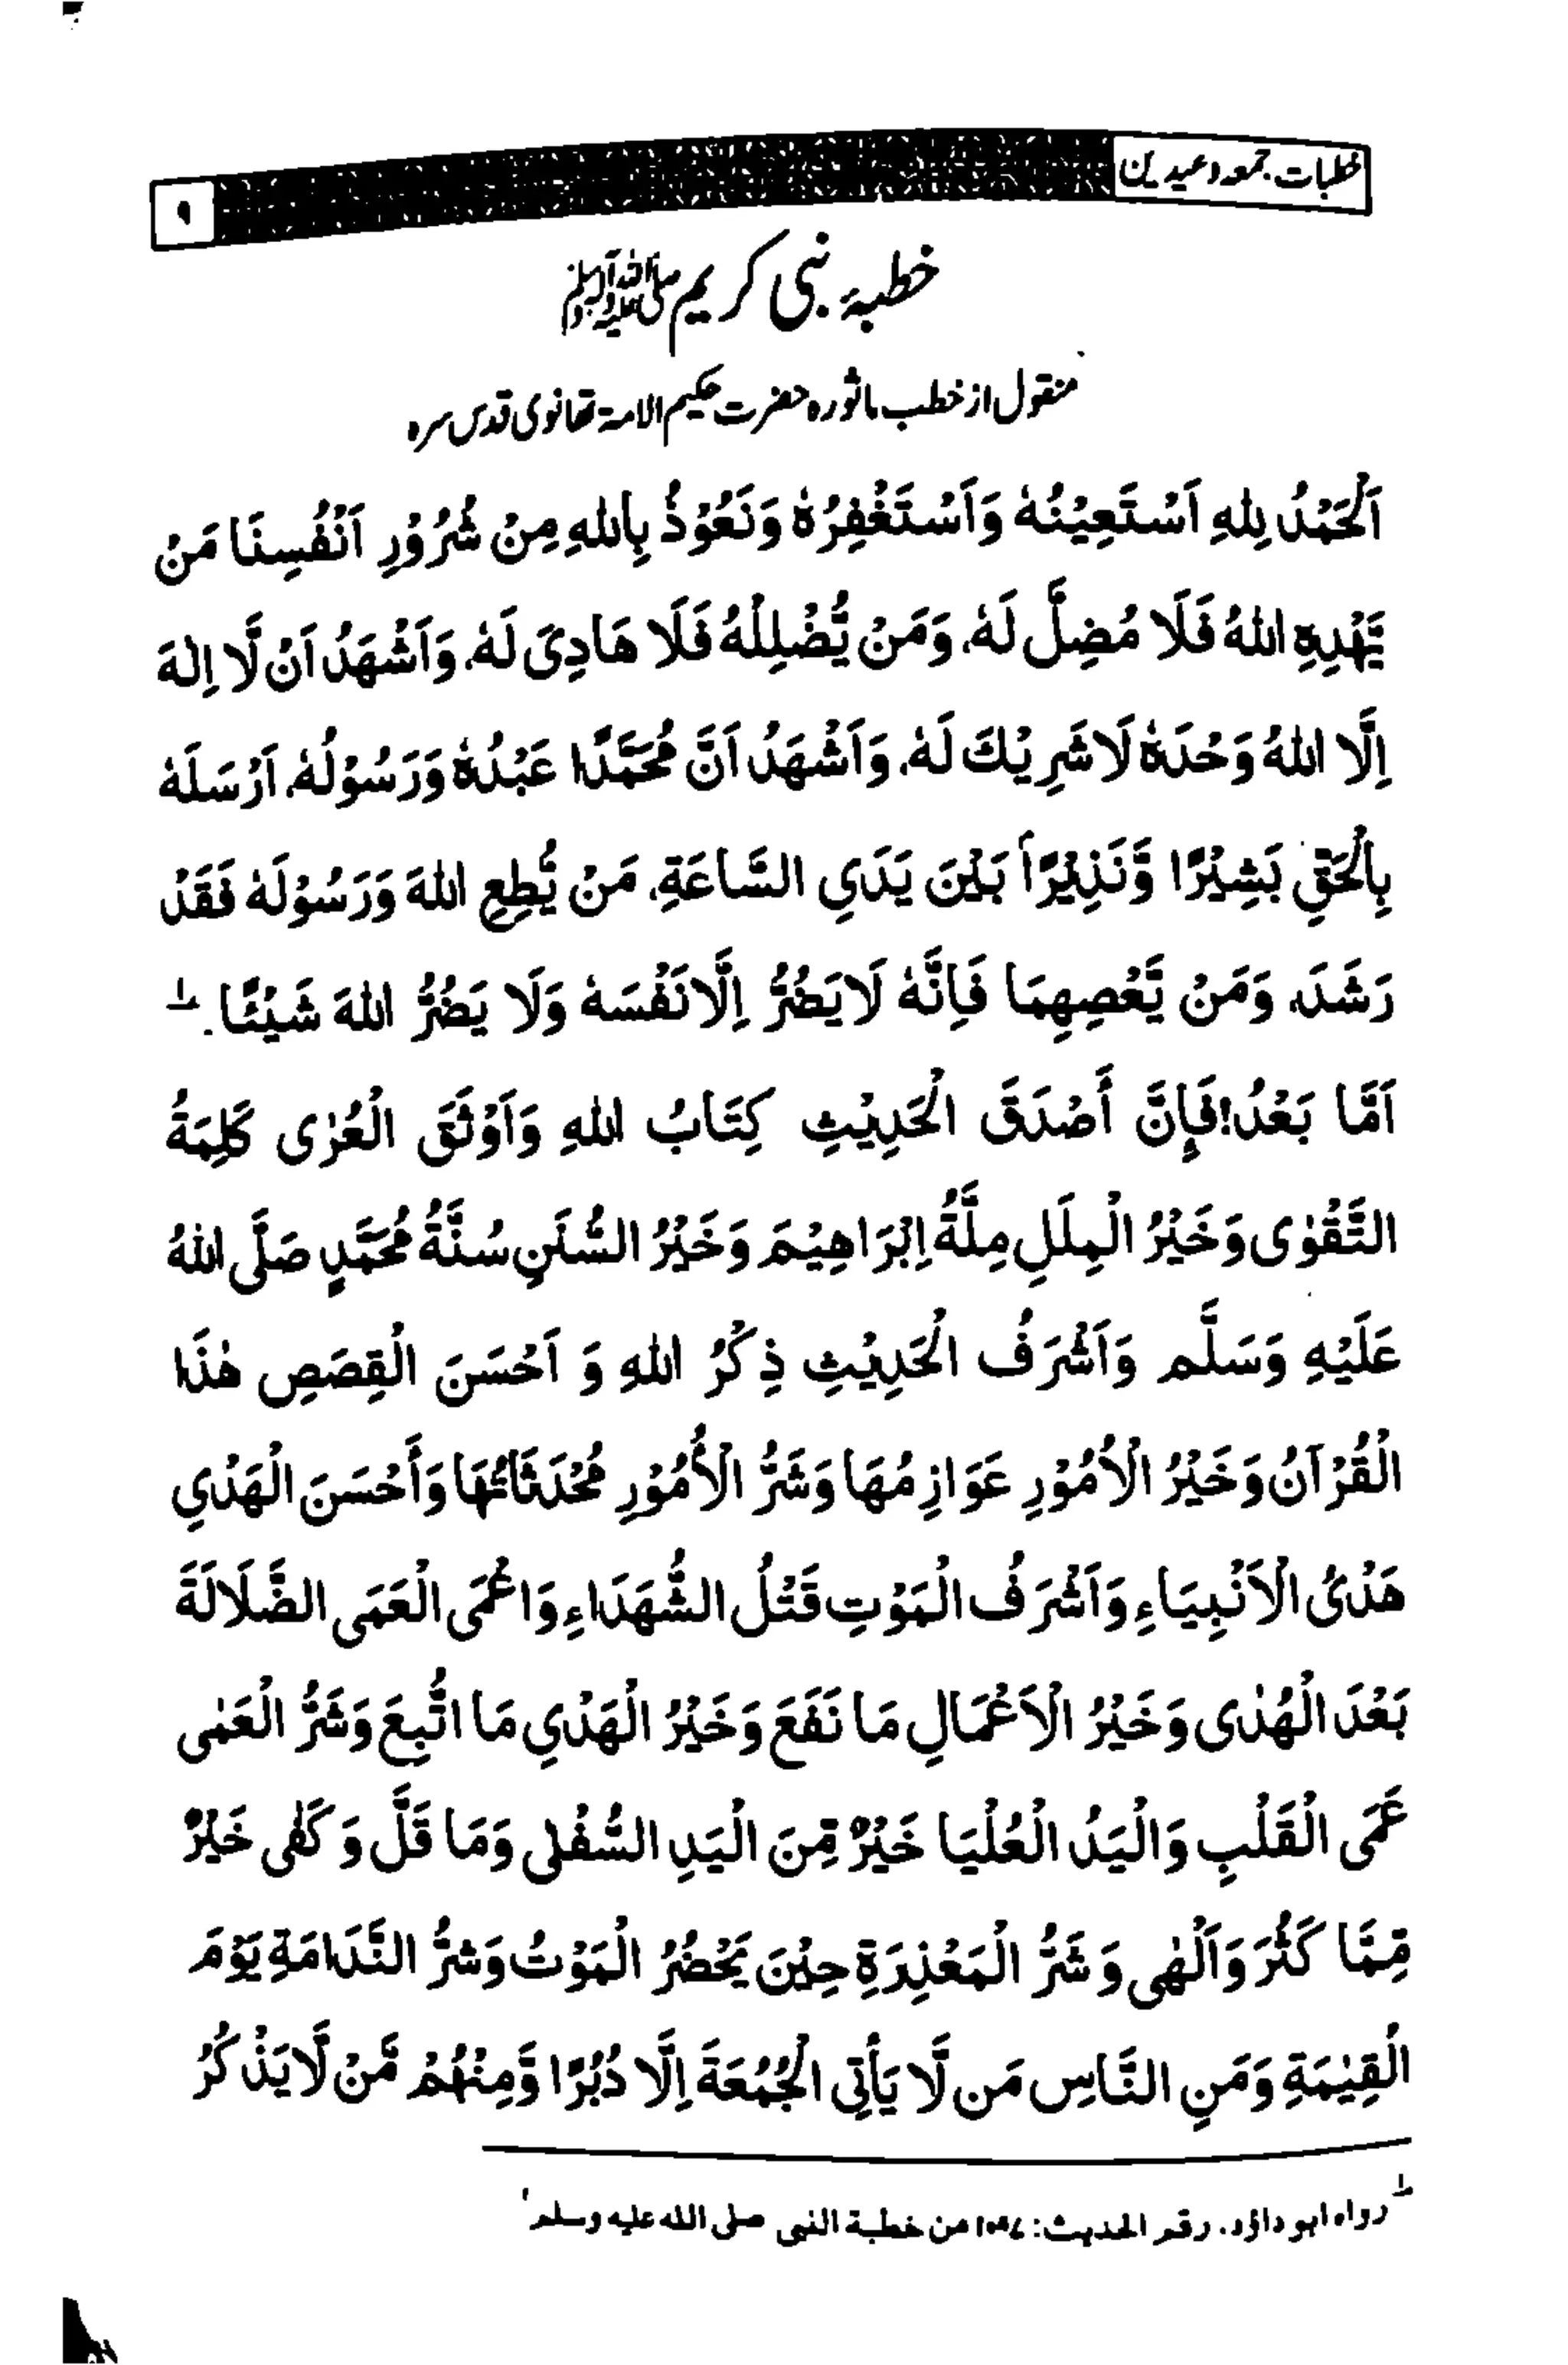 خطبات جمعہ وعیدین
۹
خطبۂ نبی کریم ﷺ
منقول از خطب ماثورہ حضرت حکیم الامۃ تھانوی قدس سرہ
اَلْحَمْدُ لِلّٰهِ اَسْتَعِيْنُهٗ وَاَسْتَغْفِرُهٗ وَنَعُوْذُ بِاللّٰهِ مِنْ شُرُوْرِ اَنْفُسِنَا مَنْ
يَّهْدِهِ اللّٰهُ فَلَا مُضِلَّ لَهٗ، وَمَنْ يُّضْلِلْهُ فَلَا هَادِيَ لَهٗ، وَاَشْهَدُ اَنْ لَّا اِلٰهَ
اِلَّا اللّٰهُ وَحْدَهٗ لَا شَرِيْكَ لَهٗ، وَاَشْهَدُ اَنَّ مُحَمَّدًا عَبْدُهٗ وَرَسُوْلُهٗ، اَرْسَلَهٗ
بِالْحَقِّ بَشِيْرًا وَّنَذِيْرًا بَيْنَ يَدَيِ السَّاعَةِ، مَنْ يُّطِعِ اللّٰهَ وَرَسُوْلَهٗ فَقَدْ
رَشَدَ، وَمَنْ يَّعْصِهِمَا فَاِنَّهٗ لَا يَضُرُّ اِلَّا نَفْسَهٗ وَلَا يَضُرُّ اللّٰهَ شَيْئًا. ؂۱
اَمَّا بَعْدُ! فَإِنَّ أَصْدَقَ الْحَدِيْثِ كِتَابُ اللّٰهِ وَاَوْثَقَ الْعُرٰى كَلِمَةُ
التَّقْوٰى وَخَيْرُ الْمِلَلِ مِلَّةُ اِبْرَاهِيْمَ وَخَيْرُ السُّنَنِ سُنَّةُ مُحَمَّدٍ صَلَّى اللّٰهُ
عَلَيْهِ وَسَلَّم وَاَشْرَفُ الْحَدِيْثِ ذِكْرُ اللّٰهِ وَ اَحْسَنَ الْقِصَصِ هٰذَا
الْقُرْآنُ وَخَيْرُ الْاُمُوْرِ عَوَازِمُهَا وَشَرُّ الْأُمُوْرِ مُحْدَثَاتُهَا وَأَحْسَنَ الْهَدْيِ
هَدْيُ الْاَنْبِيَاءِ وَاَشْرَفُ الْمَوْتِ قَتْلُ الشُّهَدَاءِ وَاعْمَى الْعَمَى الضَّلَالَةَ
بَعْدَ الْهُدٰى وَخَيْرُ الْاَعْمَالِ مَا نَفَعَ وَخَيْرُ الْهَدْيِ مَا اتُّبِعَ وَشَرُّ الْعَمٰى
عَمَى الْقَلْبِ وَالْيَدُ الْعُلْيَا خَيْرٌ مِّنَ الْيَدِ السُّفْلٰى وَمَا قَلَّ وَ كَفٰى خَيْرٌ
مِّمَّا كَثُرَ وَاَلْهٰى وَ شَرُّ الْمَعْذِرَةِ حِيْنَ يَحْضُرُ الْمَوْتُ وَشَرُّ النَّدَامَةِ يَوْمَ
الْقِيٰمَةِ وَمَنِ النَّاسِ مَن لَّا يَأتِى الْجُمُعَةَ اِلَّا دُبُرًا وَّمِنْهُمْ مَّنْ لَّا يَذْكُرُ
؂۱ رواه ابو داؤد، رقم الحدیث: ۱۰۹۷ من خطبة النبی صلى الله عليه وسلم